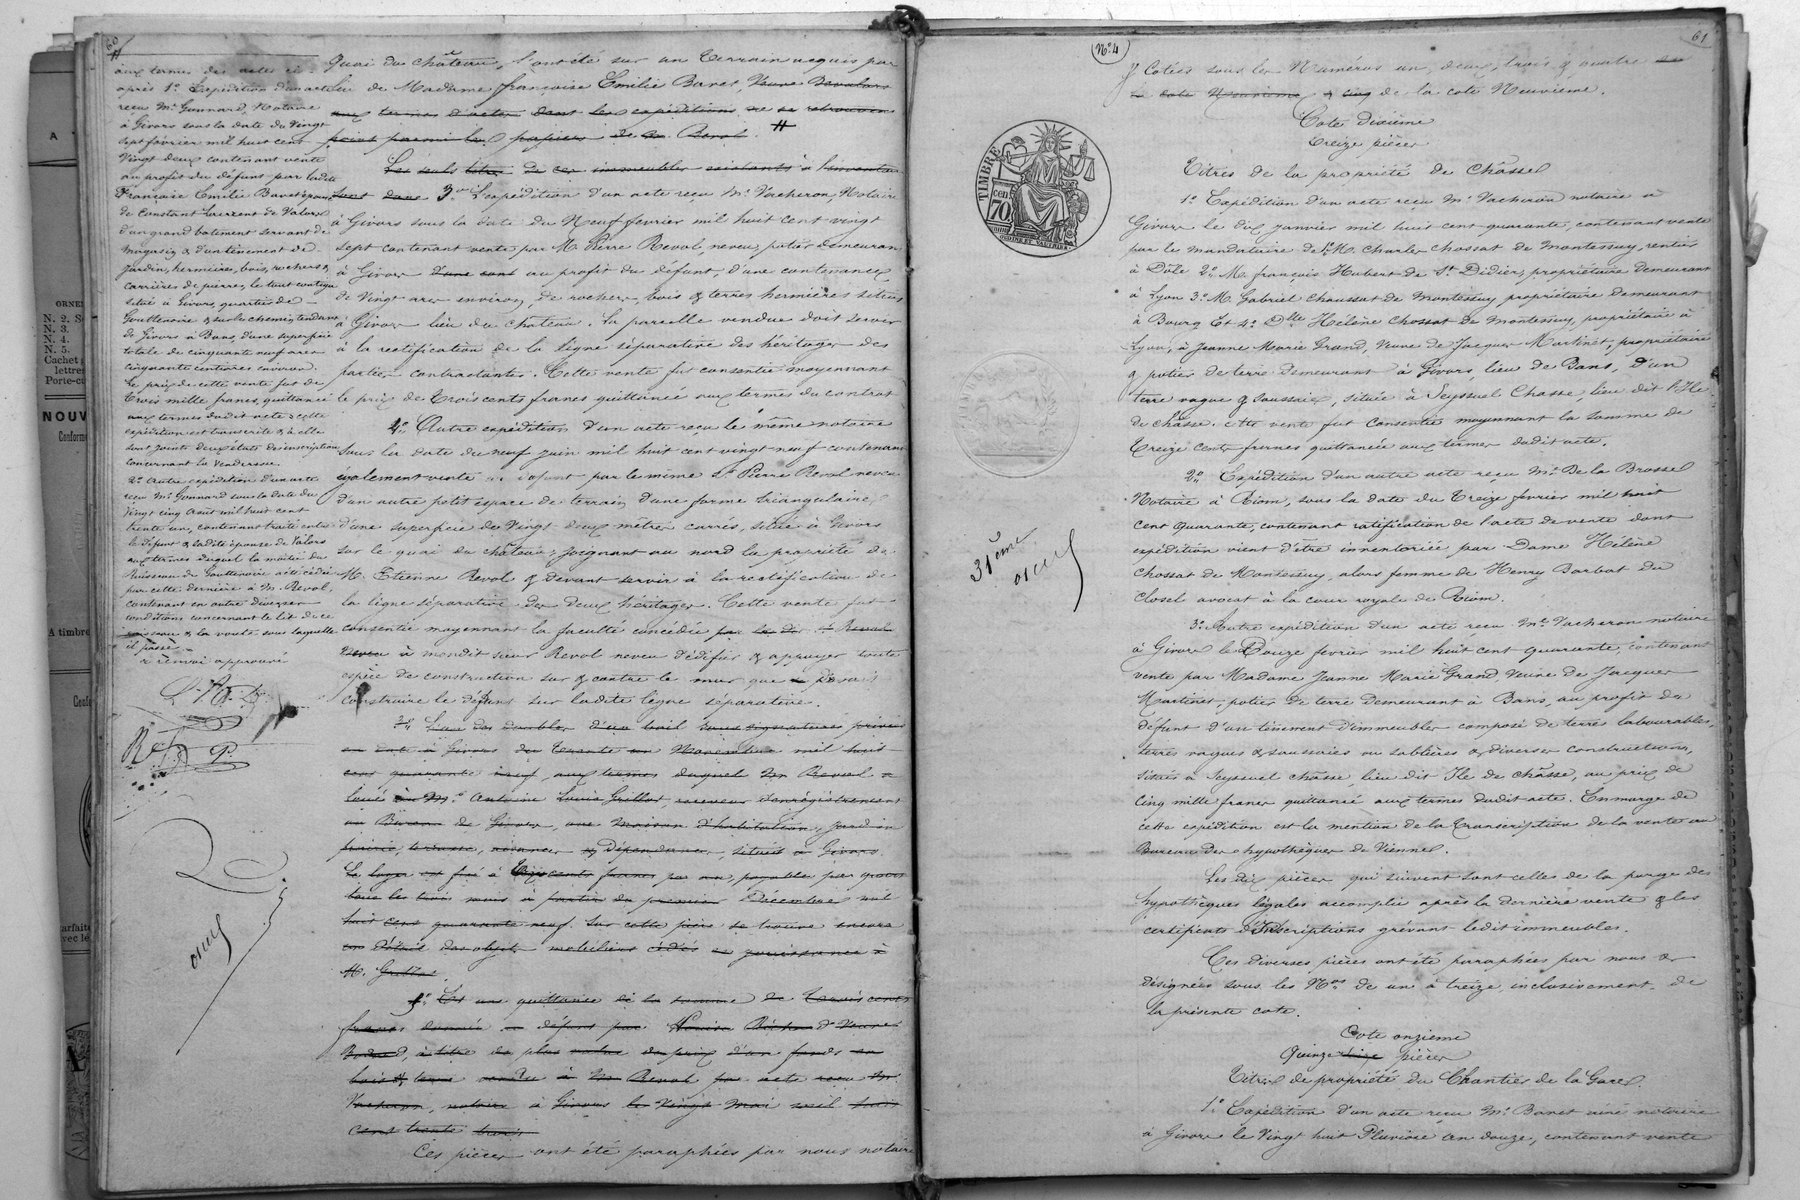 60
Quai du Château, l'ont été sur un terrain acquis par
lui de Madame françoise Emilie Banet, Veuve Devalors
aux termes d'actes dont les expéditions ne se retrouvent
point parmi les papiers de M. Revol. #
Les seuls titres de ces immeubles existants à l'inventaire
sont donc 3° L'expédition d'un acte reçu Me Vacheron, Notaire
à Givors sous la date du Neuf fevrier mil huit cent vingt
sept contenant vente par M. Pierre Revol, neveu, potier demeurant
à Givors au profit du défunt, d'une contenance
de Vingt ares environ, de rochers, bois & terres hermières situés
à Givors lieu du Château. La parcelle vendue doit servir
à la rectification de la ligne séparative des héritages des
parties contractantes. Cette vente fut consentie moyennant
le prix de trois cents francs quittancé aux termes du contrat
4° Autre expédition d'un acte reçu le même notaire
sous la date du neuf juin mil huit cent vingt neuf contenant
également vente au défunt par le même Sr Pierre Revol neveu
d'un autre petit espace de terrain d'une forme triangulaire
d'une superficie de Vingt deux mètres carrés, situé à Givors
sur le quai du château, joignant au nord la propriété de
M. Etienne Revol & devant servir à la rectification de
la ligne séparative des deux héritages. Cette vente fut
consentie moyennant la faculté concédée par le dit Sr Revol
neveu à mondit sieur Revol neveu d'édifier & appuyer toute
espèce de construction sur & contre le mur que faisait
construire le défunt sur ladite ligne séparative.
L'un des doubles d'un bail sous signatures privées
en date à Givors du trente un Novembre mil huit
cent quarante neuf, aux termes duquel M. Revol a
loué à M. Antoine Louis Guillot, receveur d'enregistrement
au Bureau de Givors, une Maison d'habitation, jardin
prairie, terrasse, & Dépendances, situés à Givors
Le loyer est fixé à cents francs par an, payable par
tous les trois mois à partir du premier Décembre mil
huit cent quarante neuf. Sur cette pièce se trouve encore
un Détail des objets mobiliers cédés en jouissance à
M. Guillot
5° Et une quittance de la somme de trois cents
francs donnée au défunt par Veuve
à titre de plus value du prix d'un fonds en
bois & terre vendu à M. Revol par acte reçu Me
Vacheron, notaire à Givors le Vingt Mai mil huit
cent trente trois
Ces pièces ont été paraphées par nous notaire
#
aux termes des actes ci-
après 1° Expédition d'un acte
reçu Me Gonnard, Notaire
à Givors sous la date du Vingt
sept février mil huit cent
Vingt deux contenant vente
au profit du défunt par ladite
Françoise Emilie Banet épouse
de Constant Laurent de Valors
d'un grand batiment servant de
magasin & d'un tènement de
Jardin, hermières, bois, rochers &
carrières de pierres, le tout contigu
situé à Givors, quartier de
Gouttenoire & sur le chemin tendant
de Givors à Bans, d'une superficie
totale de cinquante neuf ares
cinquante centiares environ.
Le prix de cette vente fut de
Trois mille francs, quittancé
aux termes dudit acte. à cette
expédition est transcrite & à elle
sont joints deux états d'inscription
concernant la Venderesse.
2° Autre expédition d'un acte
reçu Me Gonnard sous la date du
Vingt cinq Août mil huit cent
trente un, contenant traité entre
le défunt & ladite épouse de Valors
aux termes duquel la moitié du
Ruisseau de Gouttenoire a été cédée
par cette dernière à M. Revol,
contenant en outre diverses
conditions concernant le lit de ce
ruisseau & la voute sous laquelle
il passe.
renvoi approuvé
N° 4
61
& Cotées sous les Numéros un, deux, trois & quatre
de la cote Neuvième.
Cote dixième
Treize pièces
Titres de la propriété de Châsse
TIMBRE
cen
70
1° Expédition d'un acte reçu Me Vacheron notaire à
Givors le dix janvier mil huit cent quarante, contenant vente
par le mandataire de 1° M. Charles Chossat de Montessuy, rentier
à Dôle 2° M. François Hubert de St Didier, propriétaire demeurant
à Lyon 3° M. Gabriel Chossat de Montessuy propriétaire demeurant
à Bourg Et 4° Dlle Hélène Chossat de Montessuy, propriétaire à
Lyon, à Jeanne Marie Grand, Veuve de Jacques Martinet, propriétaire
& potier de terre demeurant à Givors, lieu de Bans, d'un
terre vague & saussaie, située à Seyssuel Chasse, lieu dit l'Ile
de châsse. Cette vente fut consentie moyennant la somme de
treize cents francs quittancée aux termes dudit acte.
2° Expédition d'un autre acte reçu Me De la Brosse
Notaire à Riom, sous la date du treize fevrier mil huit
cent quarante, contenant ratification de l'acte de vente dont
expédition vient d'être inventoriée par Dame Hélène
Chossat de Montessuy, alors femme de Henry Barbat du
Closel avocat à la cour royale de Riom.
31ème
3° Autre expédition d'un acte reçu Me Vacheron notaire
à Givors le Douze fevrier mil huit cent quarante, contenant
vente par Madame Jeanne Marie Grand Veuve de Jacques
Martinet, potier de terre demeurant à Bans, au profit du
défunt d'un tènement d'immeubles composé de terres labourables,
terres vagues & saussaies ou sablières & diverses constructions,
situés à Seyssuel châsse, lieu dit Ile de châsse, au prix de
Cinq mille francs quittancé aux termes dudit acte. En marge de
cette expédition est la mention de la transcription de la vente au
Bureau des hypothèques de Vienne.
Les dix pièces qui suivent sont celles de la purge des
hypothèques légales accomplie après la dernière vente & les
certificats d'Inscriptions grévant ledit immeubles.
Ces diverses pièces ont été paraphées par nous &
désignées sous les Nos de un à treize inclusivement de
la présente cote.
Cote onzième
Quinze pièces
Titres de propriété du Chantier de la Gare.
1° Expédition d'un acte reçu Me Banet ainé notaire
à Givors le Vingt huit Pluviose an douze, contenant vente